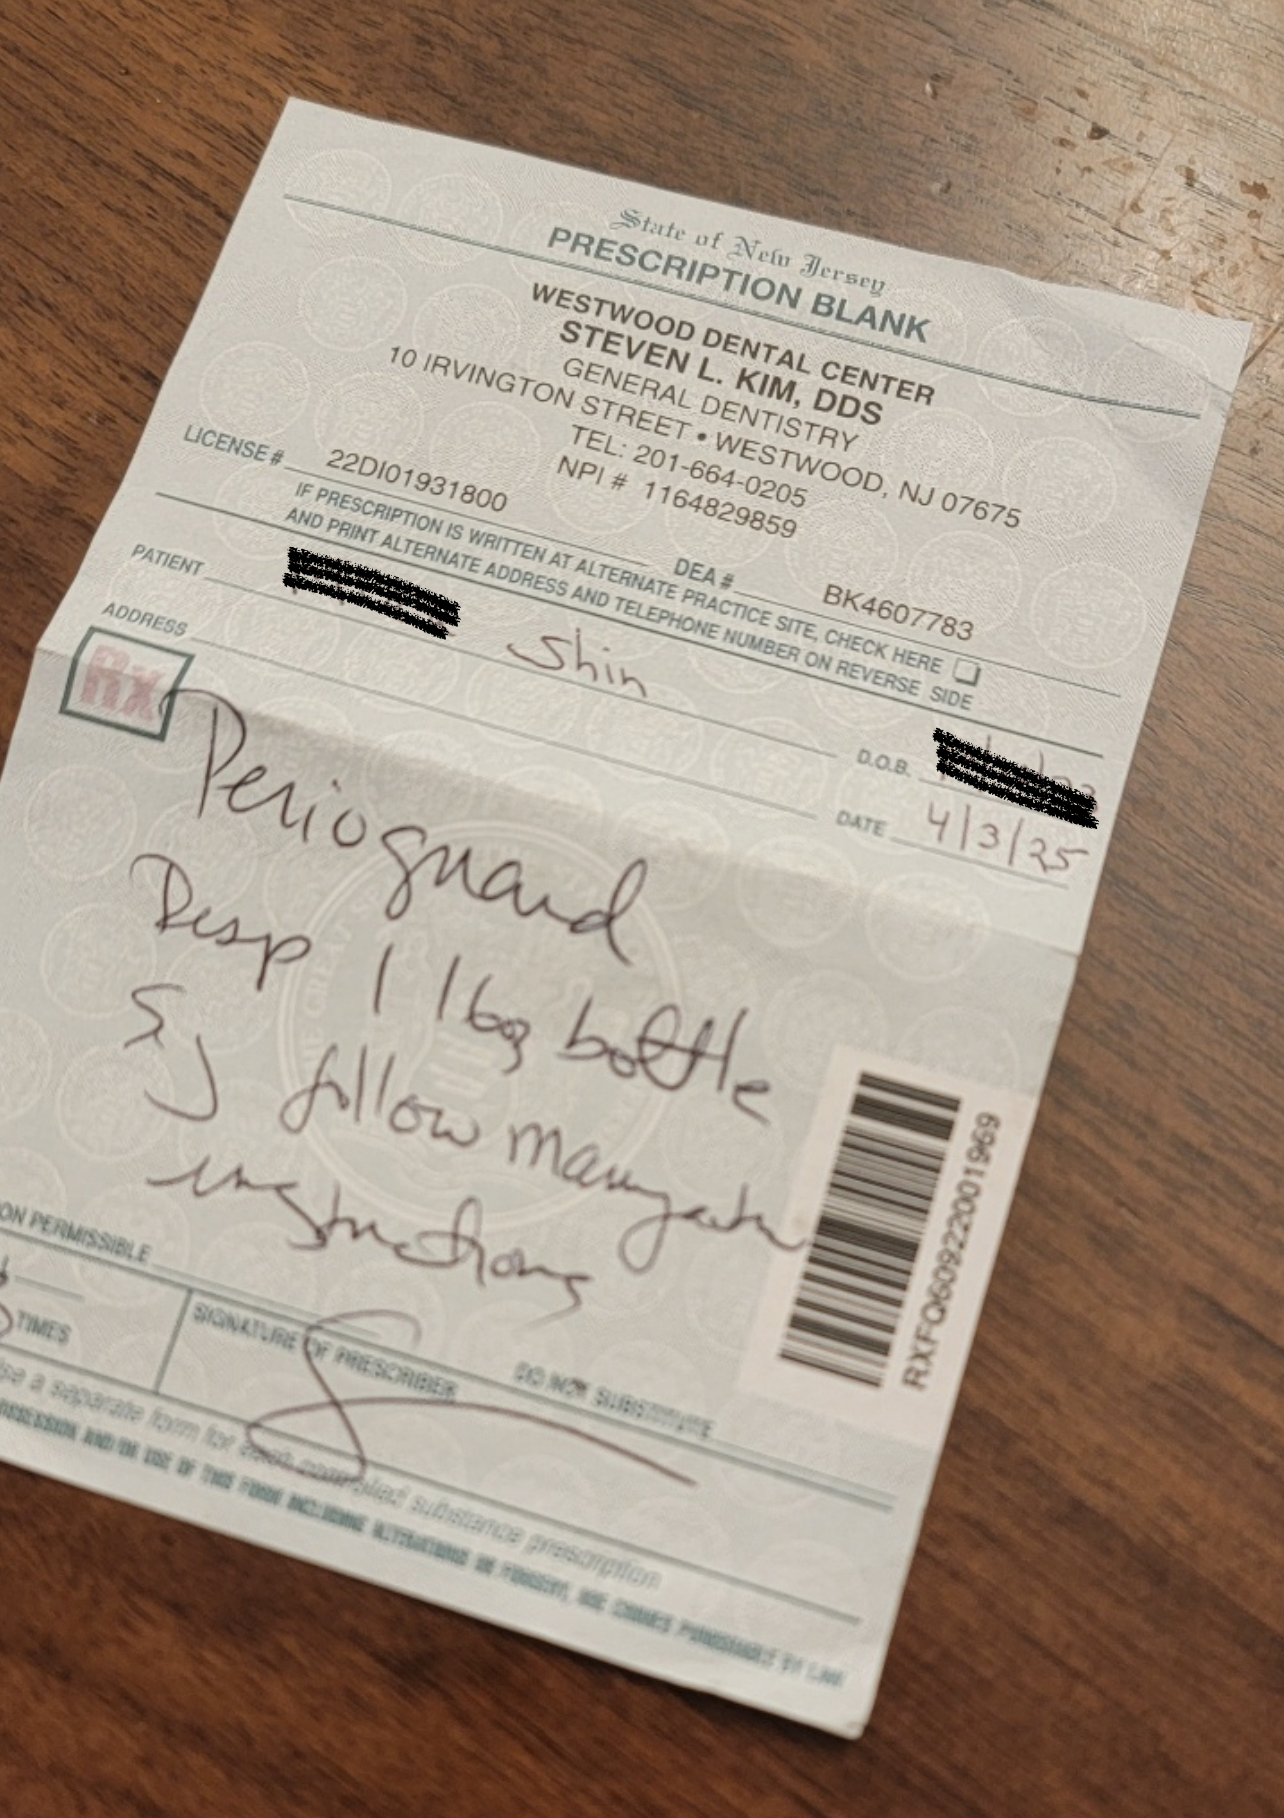 State of New Jersey
PRESCRIPTION BLANK
WESTWOOD DENTAL CENTER
STEVEN L. KIM, DDS
GENERAL DENTISTRY
10 IRVINGTON STREET • WESTWOOD, NJ 07675
TEL: 201-664-0205
NPI # 1164829859
LICENSE # 22DI01931800 DEA # BK4607783
IF PRESCRIPTION IS WRITTEN AT ALTERNATE PRACTICE SITE, CHECK HERE
AND PRINT ALTERNATE ADDRESS AND TELEPHONE NUMBER ON REVERSE SIDE
PATIENT Shin D.O.B.
ADDRESS DATE 4/3/25
Rx
Perioguard
Disp 1 16oz bottle
follow
instructions
ON PERMISSIBLE
TIMES
SIGNATURE OF PRESCRIBER DO NOT SUBSTITUTE
a separate form for each controlled substance prescription
AND/OR USE OF THIS FORM INCLUDING ALTERATIONS OR FORGERY, ARE CRIMES PUNISHABLE BY LAW
RXFQ60922001969